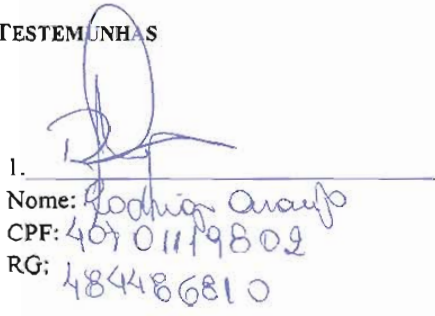 TESTEMUNHAS
1.
Nome: Rodrigo Araujo
CPF: 40701119802
RG: 484486810